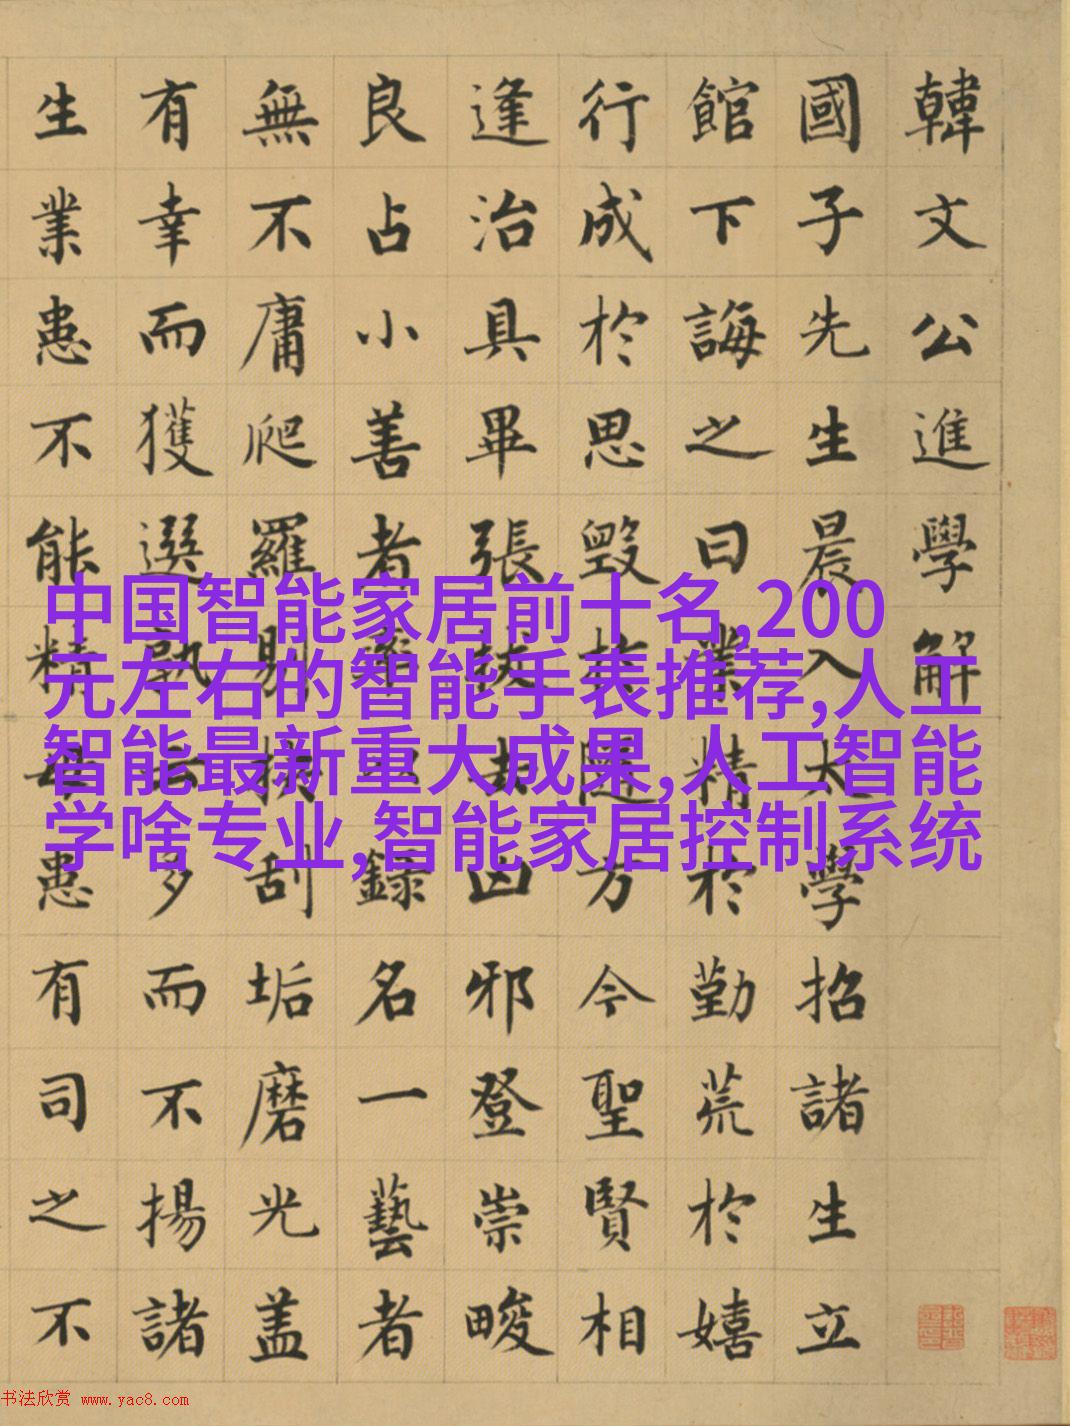 韓文公進學解
國子先生晨入太學招諸生立
館下誨之曰業精於勤荒於嬉
行成於思毀於隨方今聖賢相
逢治具畢張拔去凶邪登崇畯
良占小善者率以録名一藝者
無不庸爬羅剔抉刮垢磨光盖
有幸而獲選孰云多而不揚諸
生業患不能精毋患有司之不
中国智能家居前十名,200
元左右的智能手表推荐,人工
智能最新重大成果,人工智能
学啥专业,智能家居控制系统
书法欣赏 www.yac8.com